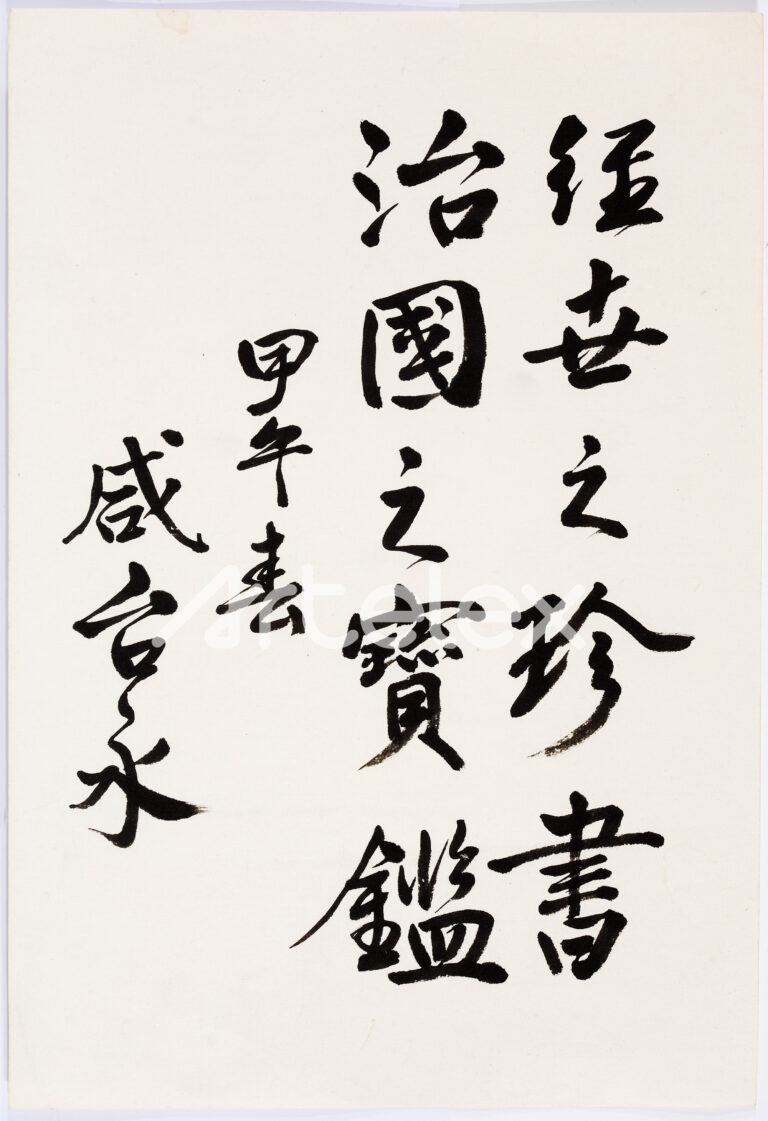 經世之珍書
治國之寶鑑
甲午春
咸台永
Artelex